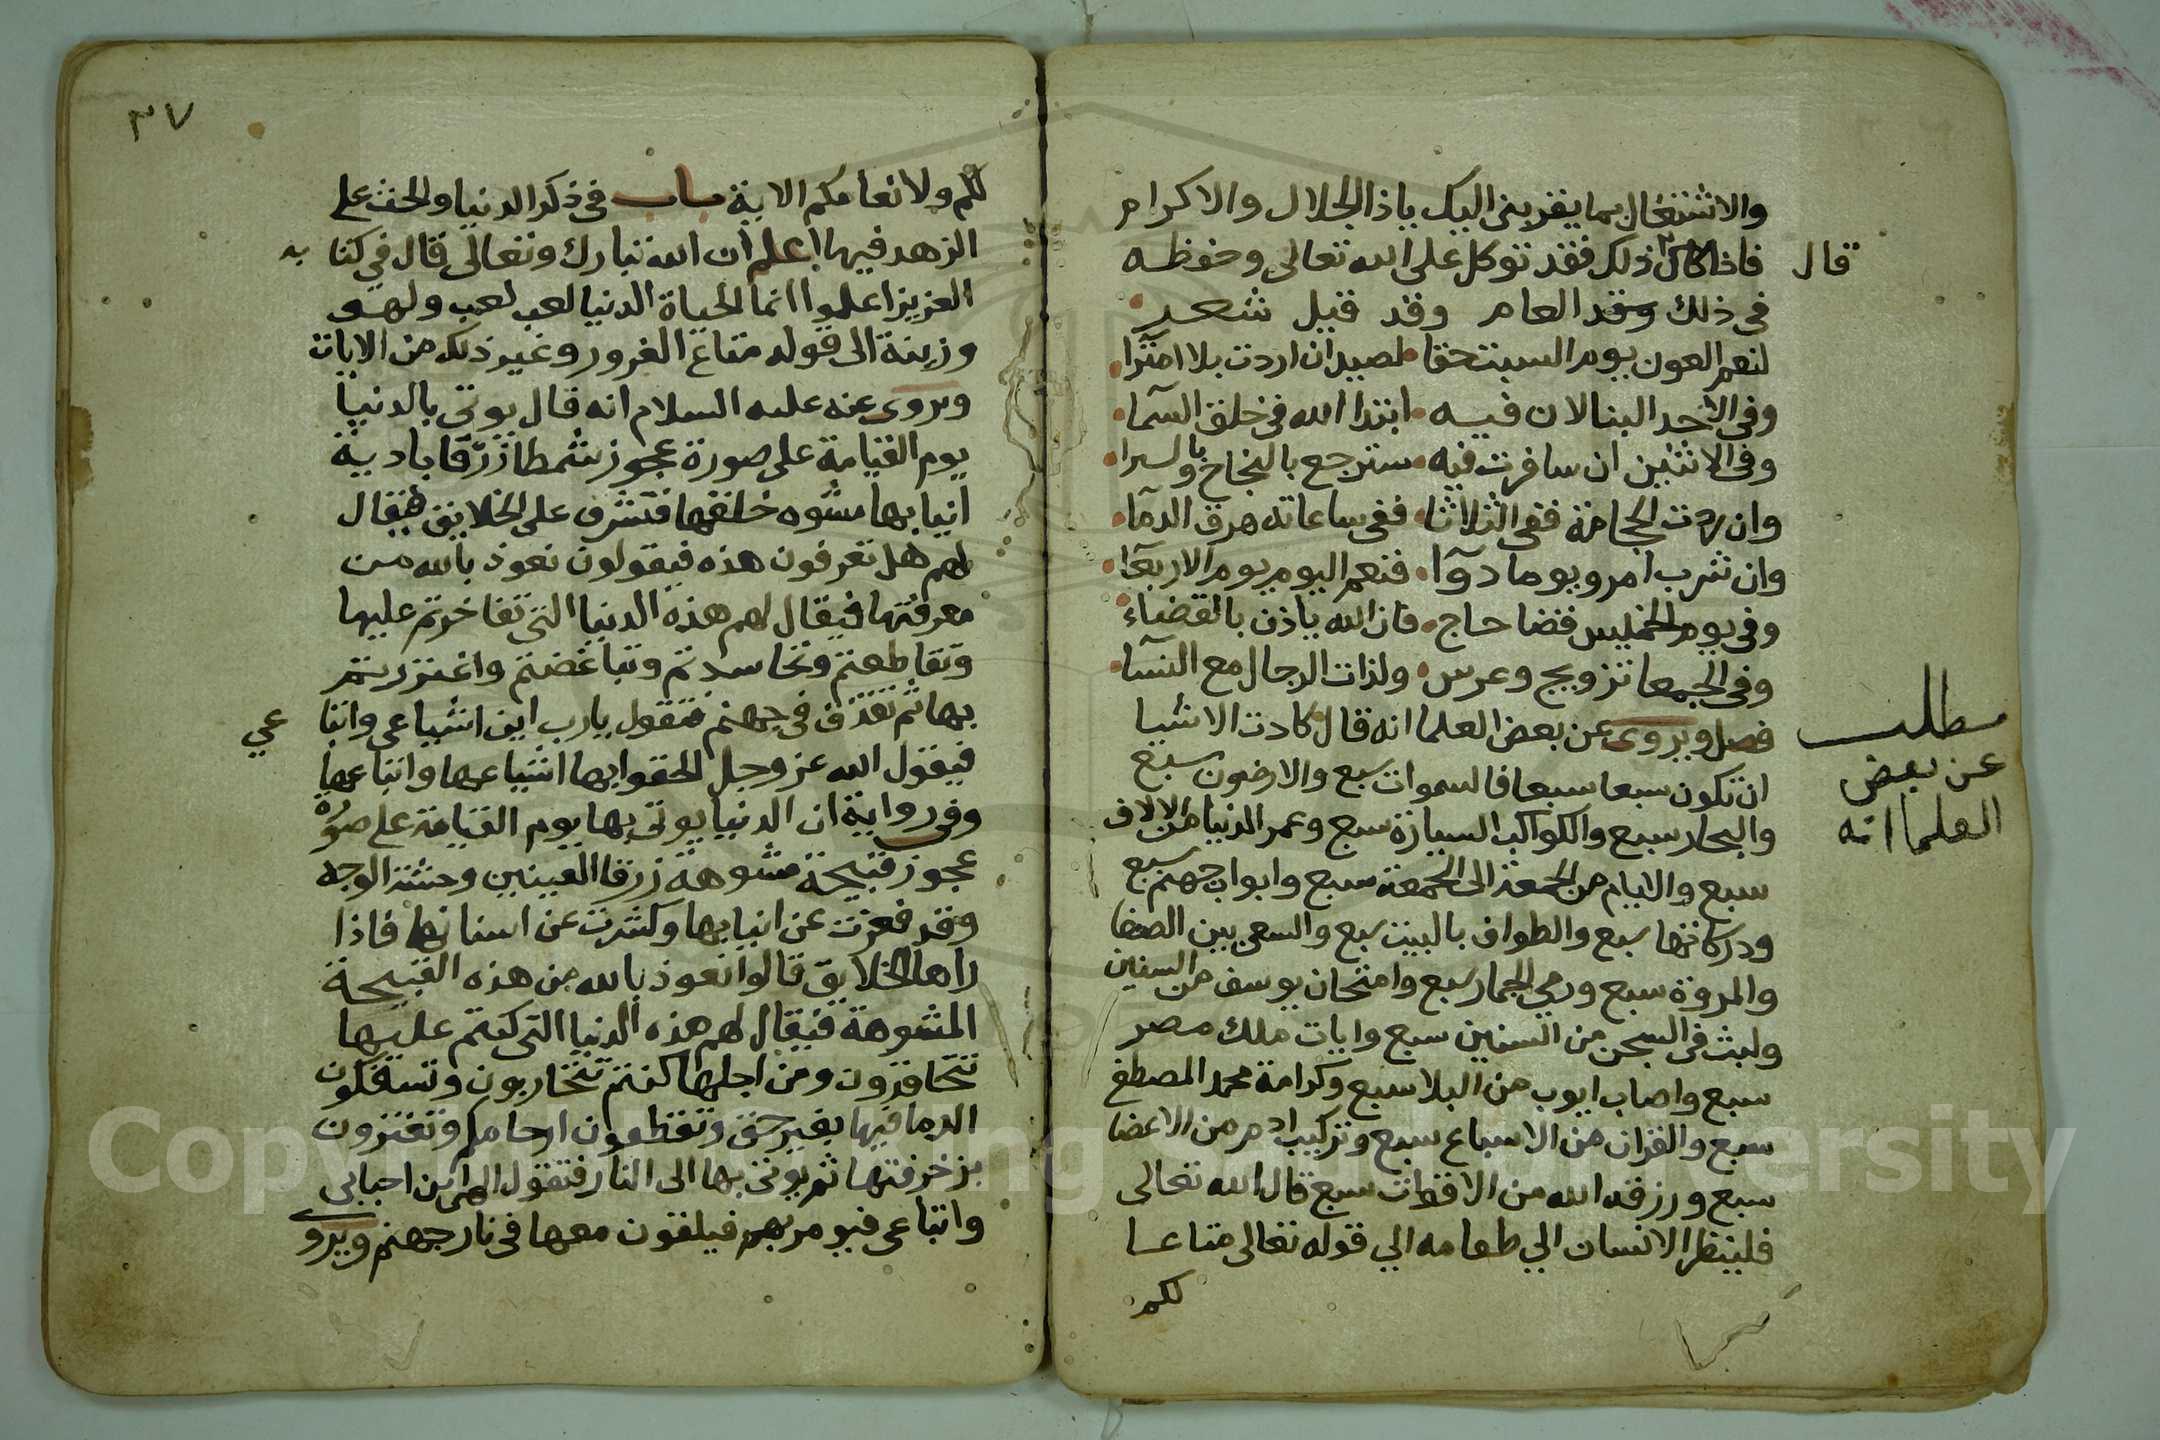 والاشتغال بما يقربنى اليك ياذا الجلال والاكرام
فاذا كان ذلك فقد توكل على الله تعالى وحفظه
قال
فى ذلك وقد العام وقد قيل شعر
لنعم العون يوم السبت حقا لصيد ان اردت بلا امترا
وفى الاحد البنا لان فيه ابتدا الله فى خلق السما
وفى الاثنين ان سافرت فيه سترجع بالنجاح وبالسرا
وان ردت الحجامة ففى الثلاثا ففى ساعاته هرق الدما
وان شرب امرو يوما دوآ فنعم اليوم يوم الاربعا
وفى يوم الخميس قضا حاج فان الله ياذن بالقضاء
وفى الجمعا تزويج وعرس ولذات الرجال مع النسا
فصل ويروى عن بعض العلما انه قال كادت الاشيا
مطلب
عن بعض
العلما انه
ان تكون سبعا سبعا فالسموات سبع والارضون سبع
والبحار سبع والكواكب السيارة سبع وعمر الدنيا من الالاف
سبع والايام من الجمعة الى الجمعة سبع وابواب جهنم سبع
ودركاتها سبع والطواف بالبيت سبع والسعى بين الصفا
والمروة سبع ورمي الجمار سبع وامتحان يوسف من السنين
ولبث فى السجن من السنين سبع وايات ملك مصر
سبع واصاب ايوب من البلا سبع وكرامة محمد المصطفى
سبع والقران من الاسباع سبع وتركيب ادم من الاعضا
سبع ورزقه الله من الاقوات سبع قال الله تعالى
فلينظر الانسان الي طعامه الي قوله تعالى متاعا
لكم
٣٧
لكم ولانعامكم الاية باب فى ذكر الدنيا والحث على
الزهد فيها اعلم ان الله تبارك وتعالى قال في كتا
به
العزيز اعلموا انما الحياة الدنيا لعب لعب ولهو
وزينة الى قوله متاع الغرور وغير ذلك من الايات
ويروى عنه عليه السلام انه قال يوتى بالدنيا
يوم القيامة على صورة عجوز شمطا زرقا بادية
انيابها مشوه خلقها فتشرف على الخلايق فيقال
لهم هل تعرفون هذه فيقولون نعوذ بالله من
معرفتها فيقال لهم هذه الدنيا التى تفاخرتم عليها
وتقاطعتم وتحاسدتم وتباغضتم واغتررتم
بها ثم تقذف فى جهنم فتقول يارب اين اشياعى واتبا
عي
فيقول الله عز وجل الحقوا بها اشياعها واتباعها
وفى رواية ان الدنيا يوتى بها يوم القيامة على صورة
عجوز قبيحة مشوهة زرقا العينين وحشة الوجه
وقد فغرت عن انيابها وكشرت عن اسنانها فاذا
راها الخلايق قالوا نعوذ بالله من هذه القبيحة
المشوهة فيقال لهم هذه الدنيا التى كنتم عليها
تتحاقدون ومن اجلها كنتم تتحاربون وتسفكون
الدما فيها بغير حق وتقطعون ارحامكم وتغترون
بزخرفتها ثم يوتى بها الى النار فتقول الهى اين احبابى
واتباعى فيومر بهم فيلقون معها فى نار جهنم ويرو